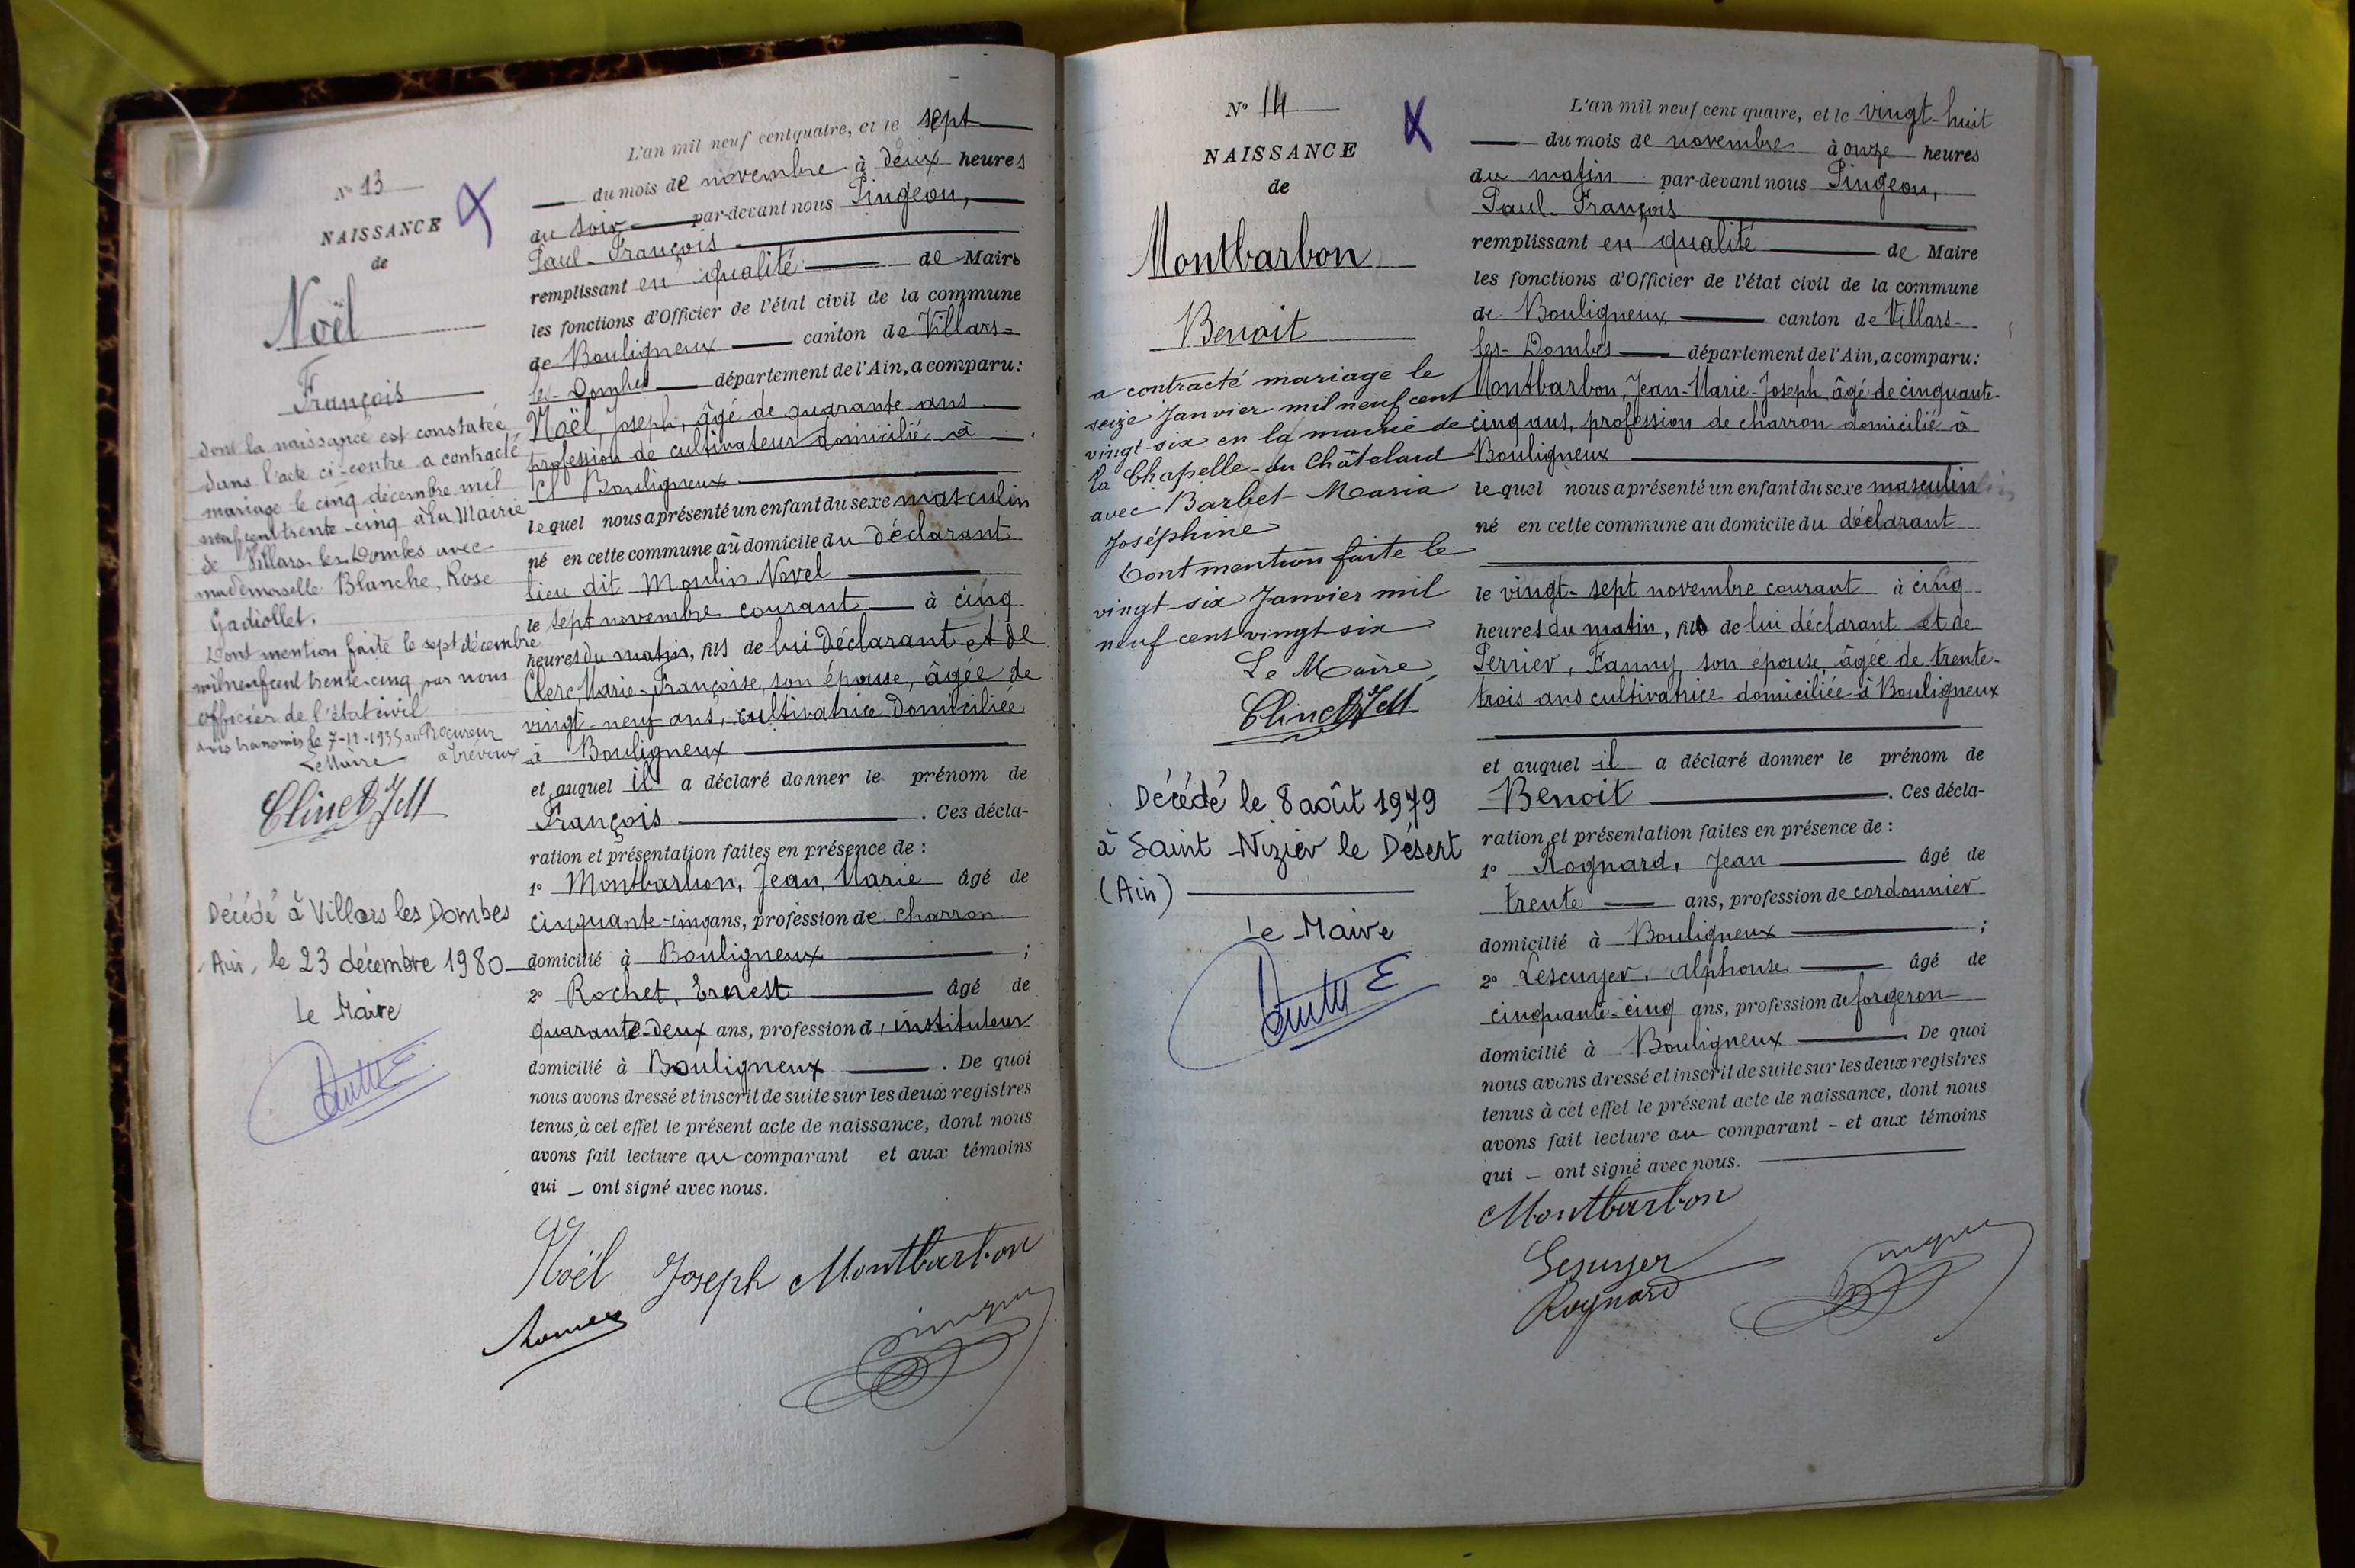 N° 13
NAISSANCE
de
Noël
François
dont la naissance est constatée
dans l'acte ci-contre a contracté
mariage le cinq décembre mil
neuf cent trente-cinq à la Mairie
de Villars les Dombes avec
mademoiselle Blanche, Rose
Gadiollet.
Dont mention faite le sept décembre
mil neuf cent trente-cinq par nous
officier de l'état civil
avis transmis le 7-12-1935 au Procureur
Le Maire à Trévoux
Décédé à Villars les Dombes
Ain, le 23 décembre 1980
le Maire
L'an mil neuf cent quatre, et le sept
du mois de novembre à deux heures
du soir par-devant nous Pingeon,
Paul-François
remplissant en qualité de Maire
les fonctions d'Officier de l'état civil de la commune
de Bouligneux canton de Villars-
les-Dombes département de l'Ain, a comparu:
Noël, Joseph, âgé de quarante ans
profession de cultivateur domicilié à
Bouligneux
lequel nous a présenté un enfant du sexe masculin
né en cette commune au domicile du déclarant
lieu dit Moulin Novel
le sept novembre courant à cinq
heures du matin, fils de lui déclarant et de
Clerc Marie-Françoise, son épouse, âgée de
vingt-neuf ans, cultivatrice domiciliée
à Bouligneux
et auquel il a déclaré donner le prénom de
François . Ces décla-
ration et présentation faites en présence de :
1° Montbarbon, Jean, Marie âgé de
cinquante-cinq ans, profession de charron
domicilié à Bouligneux ;
2° Rochet, Ernest âgé de
quarante-deux ans, profession d'instituteur
domicilié à Bouligneux . De quoi
nous avons dressé et inscrit de suite sur les deux registres
tenus à cet effet le présent acte de naissance, dont nous
avons fait lecture au comparant et aux témoins
qui – ont signé avec nous.
Noël Joseph Montbarbon
N° 14
NAISSANCE
de
Montbarbon
Benoit
a contracté mariage le
seize Janvier mil neuf cent
vingt-six en la mairie de
la Chapelle-du Châtelard
avec Barbet Maria
Joséphine
Dont mention faite le
vingt-six Janvier mil
neuf cent vingt six
Le Maire,
Décédé le 8 août 1979
à Saint-Nizier le Désert
(Ain)
le Maire
L'an mil neuf cent quatre, et le vingt-huit
du mois de novembre à onze heures
du matin par-devant nous Pingeon,
Paul-François
remplissant en qualité de Maire
les fonctions d'Officier de l'état civil de la commune
de Bouligneux canton de Villars-
les-Dombes département de l'Ain, a comparu:
Montbarbon, Jean-Marie-Joseph, âgé de cinquante-
cinq ans, profession de charron domicilié à
Bouligneux
lequel nous a présenté un enfant du sexe masculin
né en cette commune au domicile du déclarant
le vingt-sept novembre courant à cinq
heures du matin, fils de lui déclarant et de
Perrier, Fanny, son épouse, âgée de trente-
trois ans cultivatrice domiciliée à Bouligneux
et auquel il a déclaré donner le prénom de
Benoit . Ces décla-
ration et présentation faites en présence de :
1° Rognard, Jean âgé de
trente ans, profession de cordonnier
domicilié à Bouligneux ;
2° Lescuyer, Alphonse âgé de
cinquante-cinq ans, profession de forgeron
domicilié à Bouligneux De quoi
nous avons dressé et inscrit de suite sur les deux registres
tenus à cet effet le présent acte de naissance, dont nous
avons fait lecture au comparant – et aux témoins
qui – ont signé avec nous.
Montbarbon
Lescuyer
Rognard